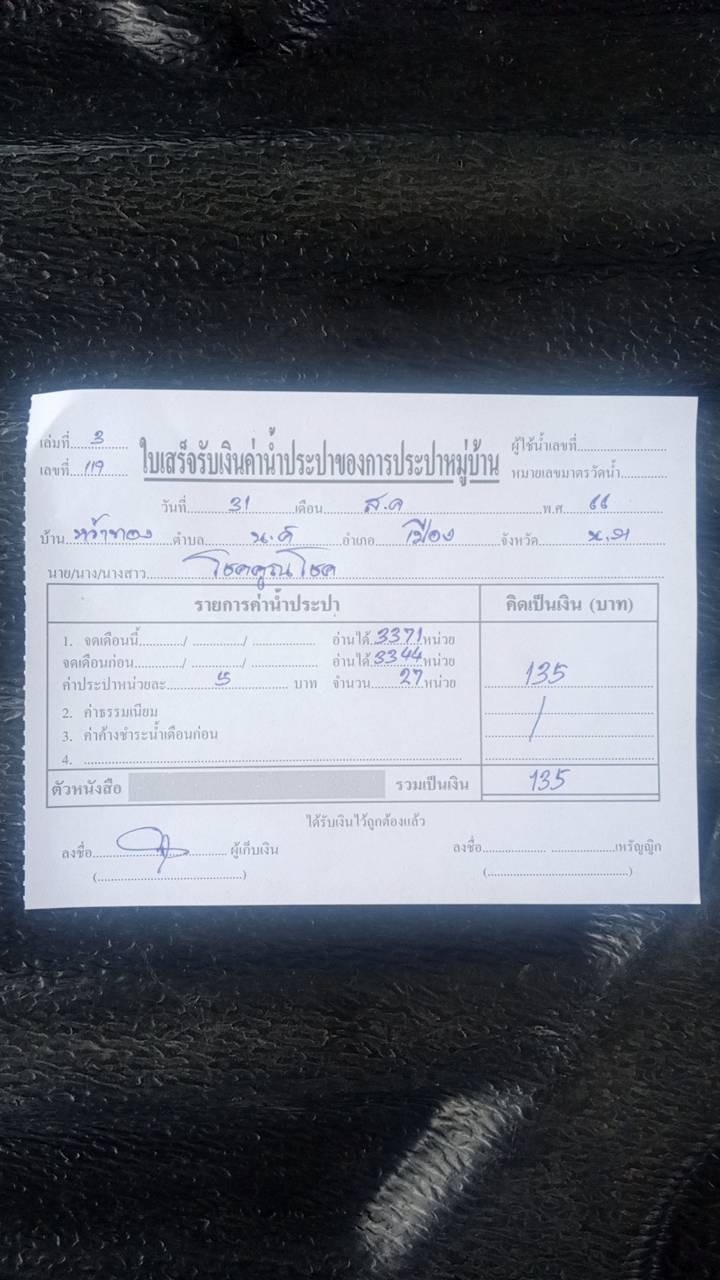 เล่มที่ 3
เลขที่ 119
ใบเสร็จรับเงินค่าน้ำประปาของการประปาหมู่บ้าน
ผู้ใช้น้ำเลขที่
หมายเลขมาตรวัดน้ำ
วันที่ 31 เดือน ส.ค พ.ศ 66
บ้าน หว้าทอง ตำบล น.ค้ อำเภอ เมือง จังหวัด
นาย/นาง/นางสาว โชคคูณโชค
รายการค่าน้ำประปา คิดเป็นเงิน (บาท)
1. จดเดือนนี้ / / อ่านได้ 3371 หน่วย
จดเดือนก่อน / / อ่านได้ 3344 หน่วย
ค่าประปาหน่วยละ 5 บาท จำนวน 27 หน่วย 135
2. ค่าธรรมเนียม
3. ค่าค้างชำระน้ำเดือนก่อน
4.
ตัวหนังสือ รวมเป็นเงิน 135
ได้รับเงินไว้ถูกต้องแล้ว
ลงชื่อ ผู้เก็บเงิน ลงชื่อ เหรัญญิก